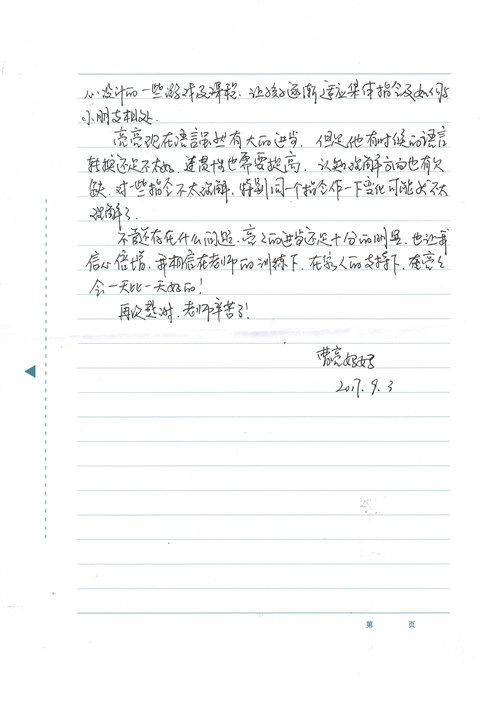 心设计的一些游戏及课程,让孩子逐渐适应集体指令及如何与
小朋友相处.
亮亮现在语言虽然有大的进步,但是他有时候的语言
转换还是不太好,连贯性也需要提高,认知理解方面也有欠
缺.对一些指令不太理解,特别同一个指令作一下变化可能就不太
理解了.
不管还存在什么问题,亮亮的进步还是十分的明显,也让我
信心倍增,我相信在老师的训练下,在家人的支持下,亮亮
会一天比一天好的!
再次感谢,老师辛苦了!
曹亮妈妈
2017.9.3
第 页